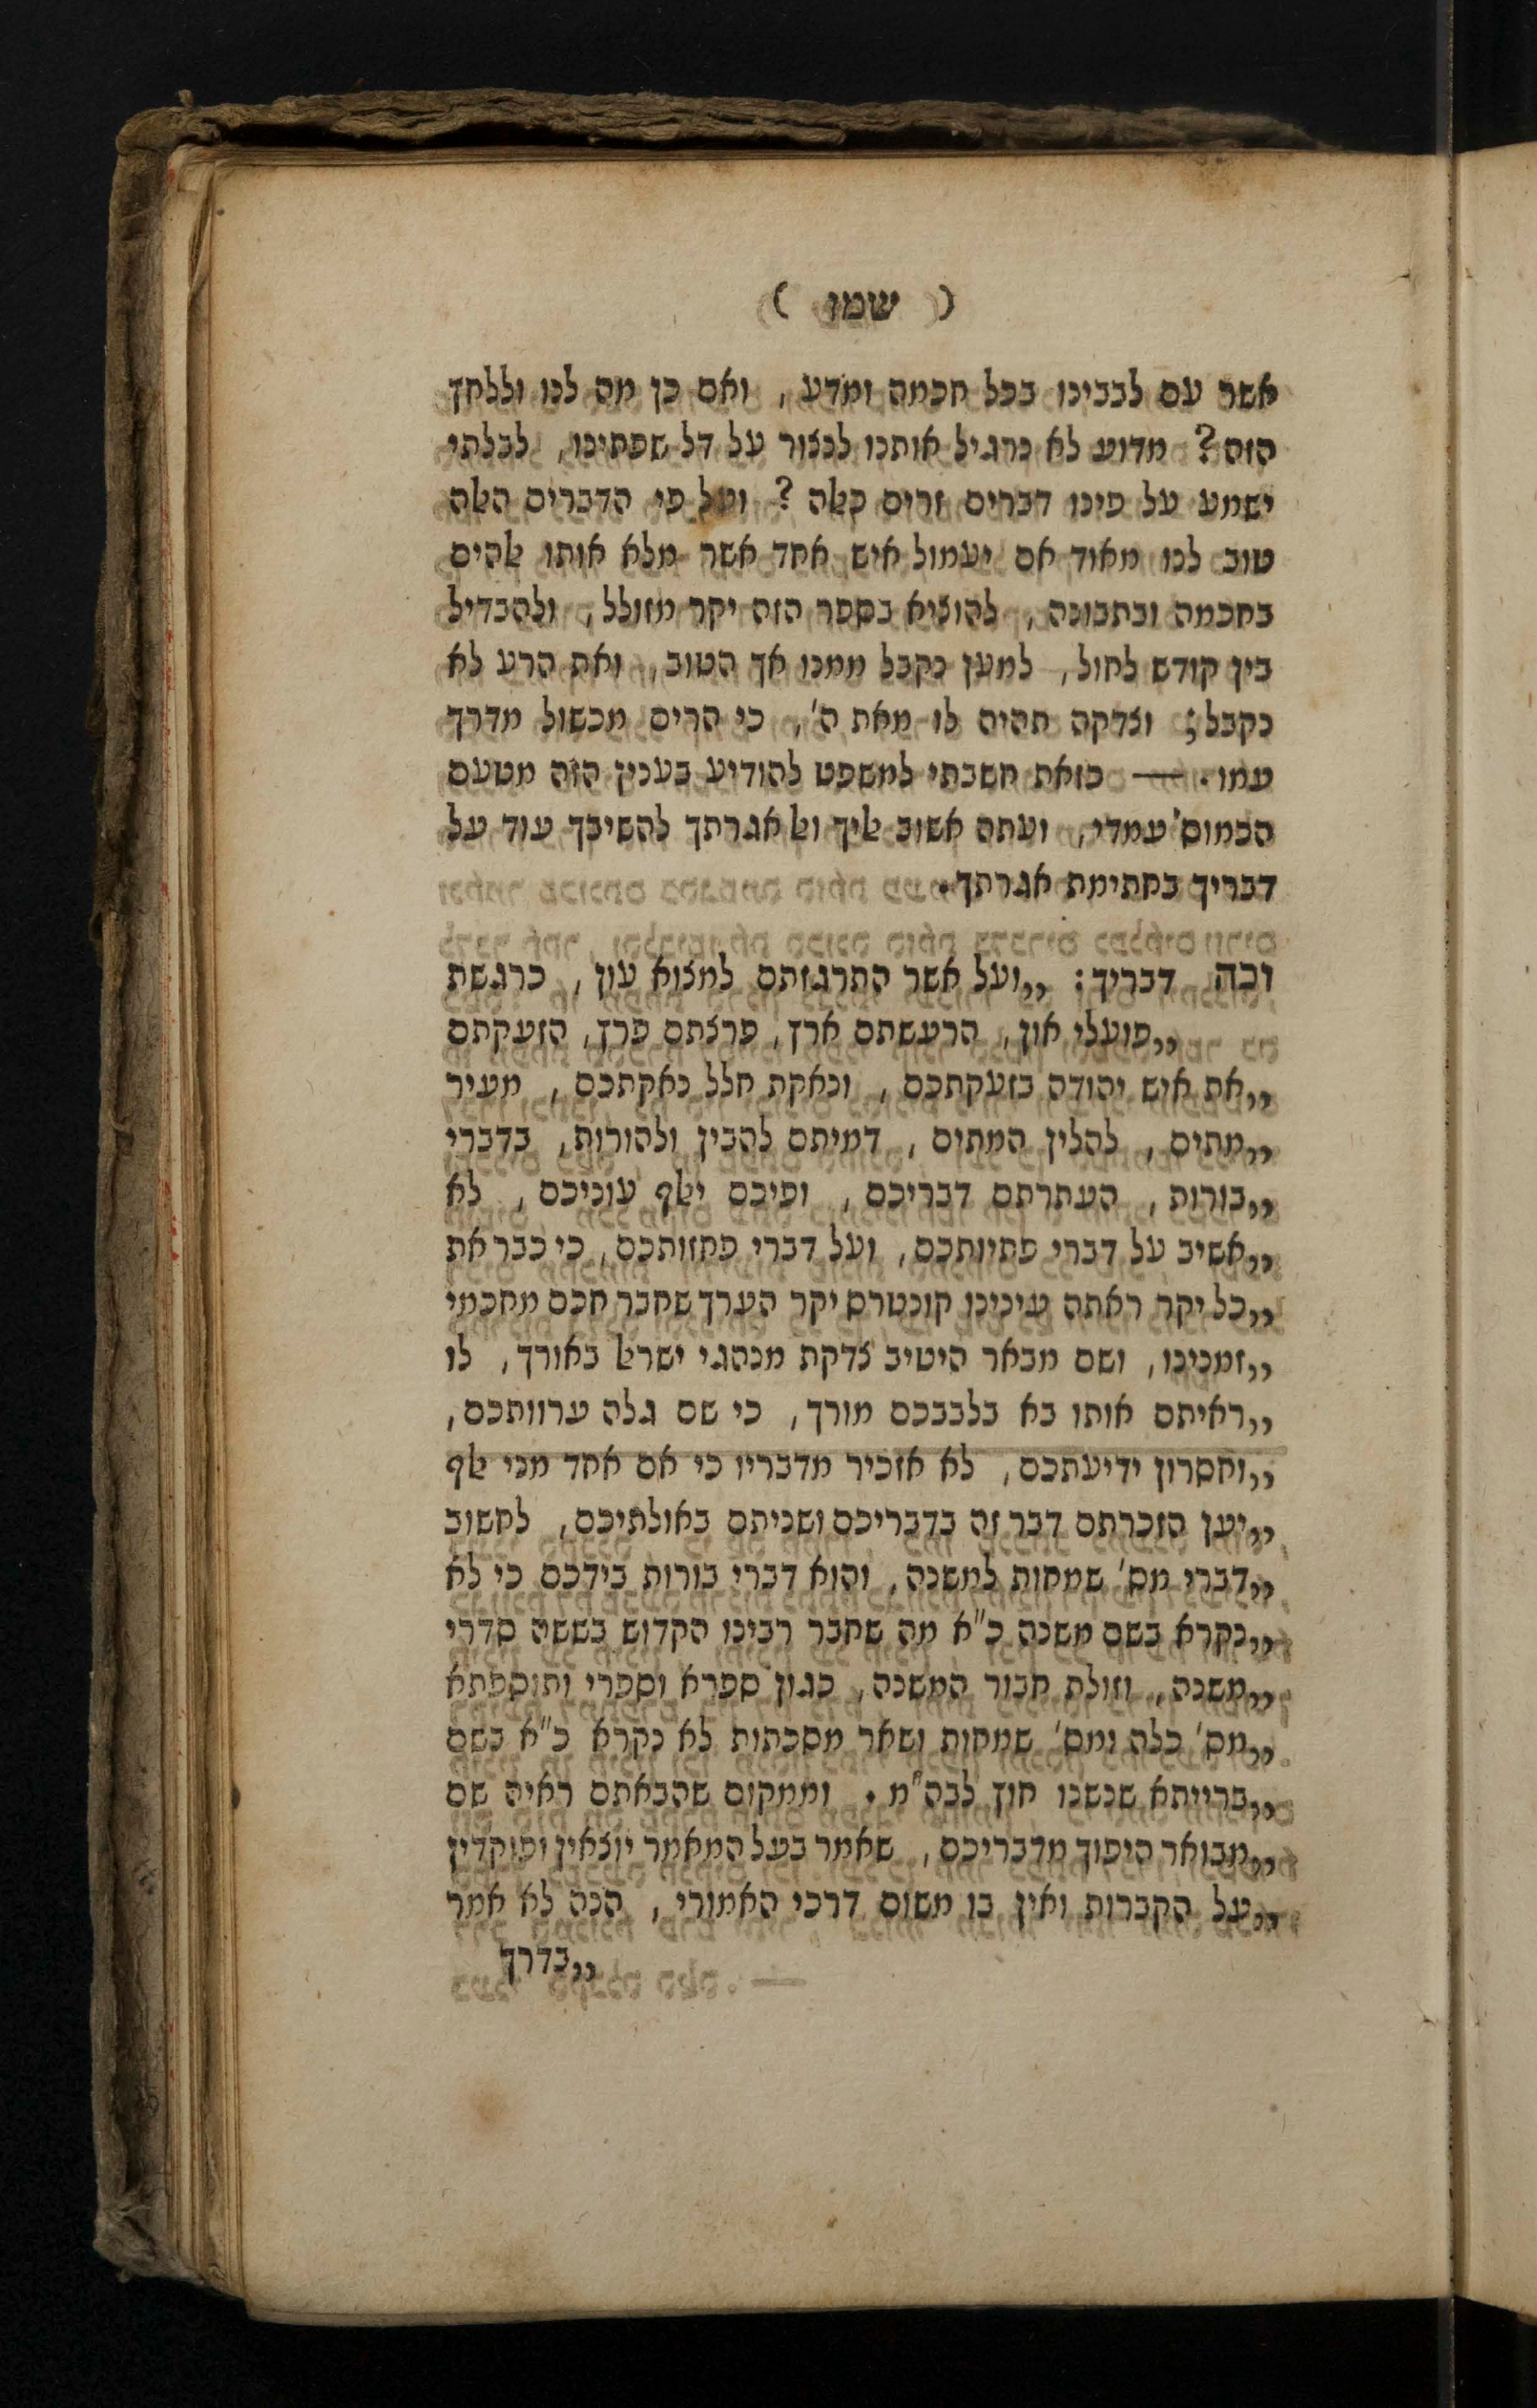 ( שמו )
אשר עם לבבינו בכל חכמה ומדע, ואם כן מה לנו וללחך
הזה? מדוע לא נרגיל אותנו לנצור על דל שפתינו, לבלתי
ישמע על פינו דברים זרים כﭏה? ועל פי הדברים הﭏה
טוב לנו מאוד אם יעמול איש אחד אשר מלא אותו ﭏהים
בחכמה ובתבונה, להוציא בספר הזה יקר מזולל, ולהבדיל
בין קודש לחול, למען נקבל ממנו אך הטוב, ואת הרע לא
נקבל; וצדקה תהיה לו מאת ה', כי הרים מכשול מדרך
עמו. — כזאת חשבתי למשפט להודיע בענין הזה מטעם
הכמוס' עמדי, ועתה אשוב ﭏיך וﭏ אגרתך להשיבך עוד על
דבריך בחתימת אגרתך.
וכה דבריך: „ועל אשר התרגזתם למצוא עון, כרגשת
„פועלי און, הרעשתם ארץ, פרצתם פרץ, הזעקתם
„את איש יהודה בזעקתכם, וכאקת חלל נאקתכם, מעיר
„מתים, להלין המתים, דמיתם להבין ולהורות, בדברי
„בורות, העתרתם דבריכם, ופיכם יﭏף עוניכם, לא
„אשיב על דברי פתיותכם, ועל דברי פחזותכם, כי כבר את
„כל יקר ראתה עינינו קונטרס יקר הערך שחבר חכם מחכמי
„זמנינו, ושם מבאר היטיב צדקת מנהגי ישרﭏ באורך, לו
„ראיתם אותו בא בלבבכם מורך, כי שם גלה ערוותכם,
„וחסרון ידיעתכם, לא אזכיר מדבריו כי אם אחד מני ﭏף
„יען הזכרתם דבר זה בדבריכם ושניתם באולתיכם, לחשוב
„דברי מס' שמחות למשנה, והוא דברי בורות בידכם כי לא
„נקרא בשם משנה כ"א מה שחבר רבינו הקדוש בששה סדרי
„משנה, וזולת חבור המשנה, כגון ספרא וספרי ותוספתא
„מס' כלה ומס' שמחות ושאר מסכתות לא נקרא כ"א בשם
„ברייתא שנשנו חוץ לבה"מ. וממקום שהבאתם ראיה שם
„מבואר היפוך מדבריכם, שאמר בעל המאמר יוצאין ופוקדין
„על הקברות ואין בו משום דרכי האמורי, הנה לא אמר
„בדרך